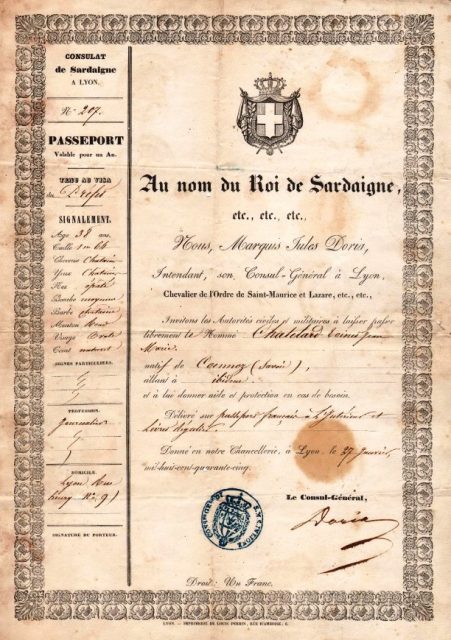 CONSULAT
de Sardaigne
A LYON.
N° 207.
PASSEPORT
Valable pour un An.
TENU AU VISA
du Préfet
SIGNALEMENT.
Age 38 ans.
Taille 1 m 66
Cheveux Chatain
Yeux Chatain
Nez
Bouche moyenne
Barbe chataine
Menton Rond
Visage Ovale
Teint naturel
SIGNES PARTICULIERS.
PROFESSION.
DOMICILE.
Lyon Rue
N° 91
SIGNATURE DU PORTEUR.
Au nom du Roi de Sardaigne,
etc., etc., etc.,
Nous, Marquis Jules Doria,
Intendant, son Consul-Général à Lyon,
Chevalier de l'Ordre de Saint-Maurice et Lazare, etc., etc.,
Invitons les Autorités civiles et militaires à laisser passer
librement le Nommé Chatelard Jean
Marie
natif de (Savoie),
allant à ibidem
et à lui donner aide et protection en cas de besoin.
Délivré sur passeport français à l'Intérieur et
Livret régulier
Donné en notre Chancellerie, à Lyon, le 27 Janvier
mil huit cent quarante cinq.
Le Consul-Général,
Doria
Droit: Un Franc.
LYON. — IMPRIMERIE DE LOUIS PERRIN, RUE D'AMBOISE, 6.